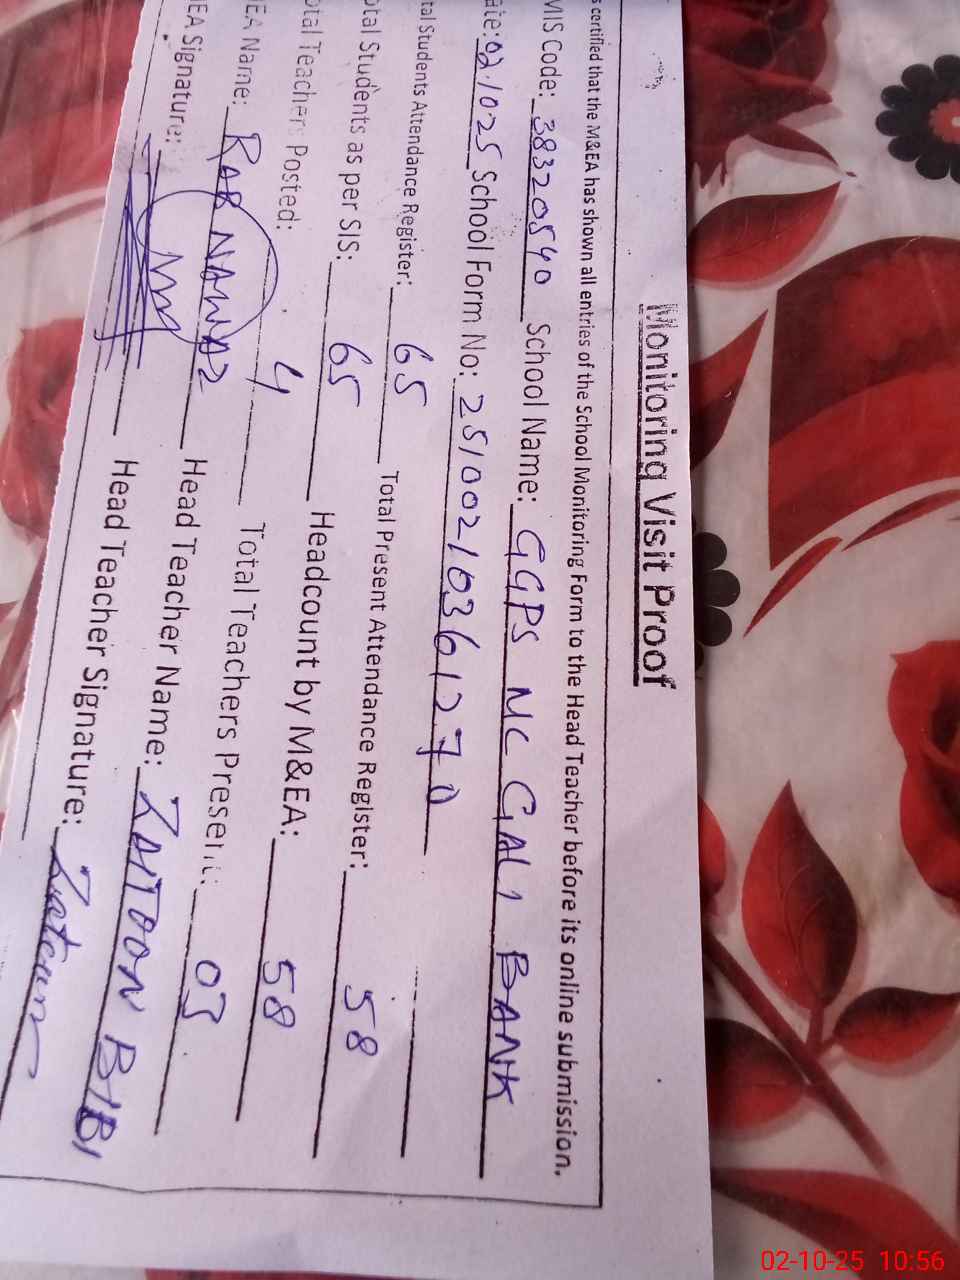 Monitoring Visit Proof
s certified that the M&EA has shown all entries of the School Monitoring Form to the Head Teacher before its online submission.
MIS Code: 38320540 School Name: GGPS MC GALI BANK
ate: 02.1025 School Form No: 25100210361270
tal Students Attendance Register: 65 Total Present Attendance Register: 58
otal Students as per SIS: 65 Headcount by M&EA: 58
otal Teachers Posted: 4 Total Teachers Present: 03
IEA Name: RAB NAWAZ Head Teacher Name: ZAITOON BIBI
IEA Signature: Head Teacher Signature:
02-10-25 10:56